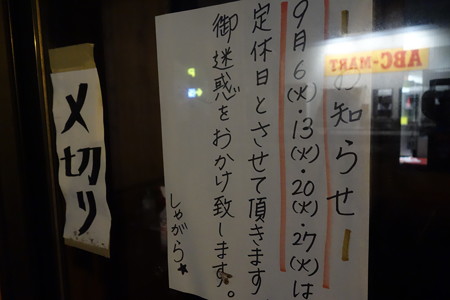 ーお知らせー
9月6(火)・13(火)・20(火)・27(火)は
定休日とさせて頂きます
御迷惑をおかけ致します。
しゃがら★
〆切り
ABC-MART
P